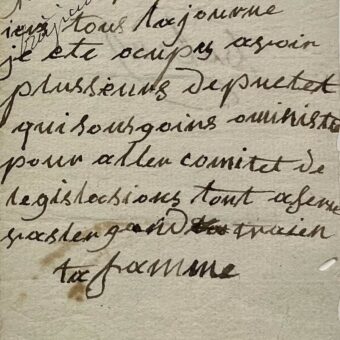 iers tous la journe
je ete ocupy avoir
plusseurs deputet
qui sousgoins o ministe
pour aller comitet de
legislasions tout afere
vas ler gand traien
ta famme